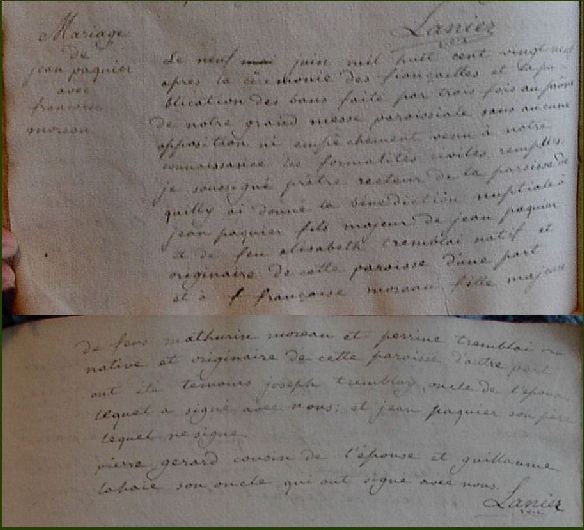 Lanier
rr
Mariage
de
jean paquier
avec
françoise
moreau
Le neuf mai juin mil huit cent vingt neuf
après la cérémonie des fiançailles et la pu-
blication des bans faite par trois fois au prône
de notre grand messe paroissiale sans aucune
opposition ni empêchement venu à notre
connaissance les formalités civiles remplies
je soussigné prêtre recteur de la paroisse de
quilly ai donné la bénédiction nuptiale à
jean paquier fils majeur de jean paquier
et de feu elisabeth tremblai natif et
originaire de cette paroisse d'une part
et à f françoise moreau fille majeure
de feus mathurin moreau et perrine tremblai
native et originaire de cette paroisse d'autre part
ont été temoins joseph tremblay oncle de l'épouse
lequel a signé avec nous; et jean paquier son père
lequel ne signe.
pierre gerard cousin de l'épouse et guillaume
lahaie son oncle qui ont signé avec nous.
Lanier